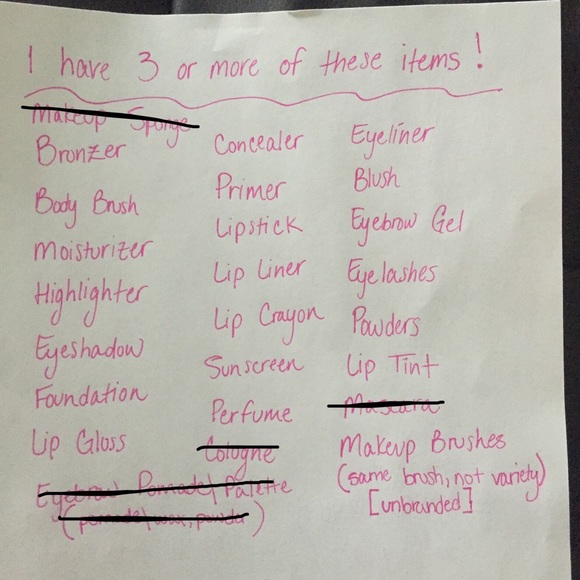 I have 3 or more of these items!
Makeup Sponge
Bronzer
Body Brush
Moisturizer
Highlighter
Eyeshadow
Foundation
Lip Gloss
Eyebrow Pomade/ Palette
(pomade/wax, powder)
Concealer
Primer
Lipstick
Lip Liner
Lip Crayon
Sunscreen
Perfume
Cologne
Eyeliner
Blush
Eyebrow Gel
Eyelashes
Powders
Lip Tint
Mascara
Makeup Brushes
(same brush, not variety)
[unbranded]